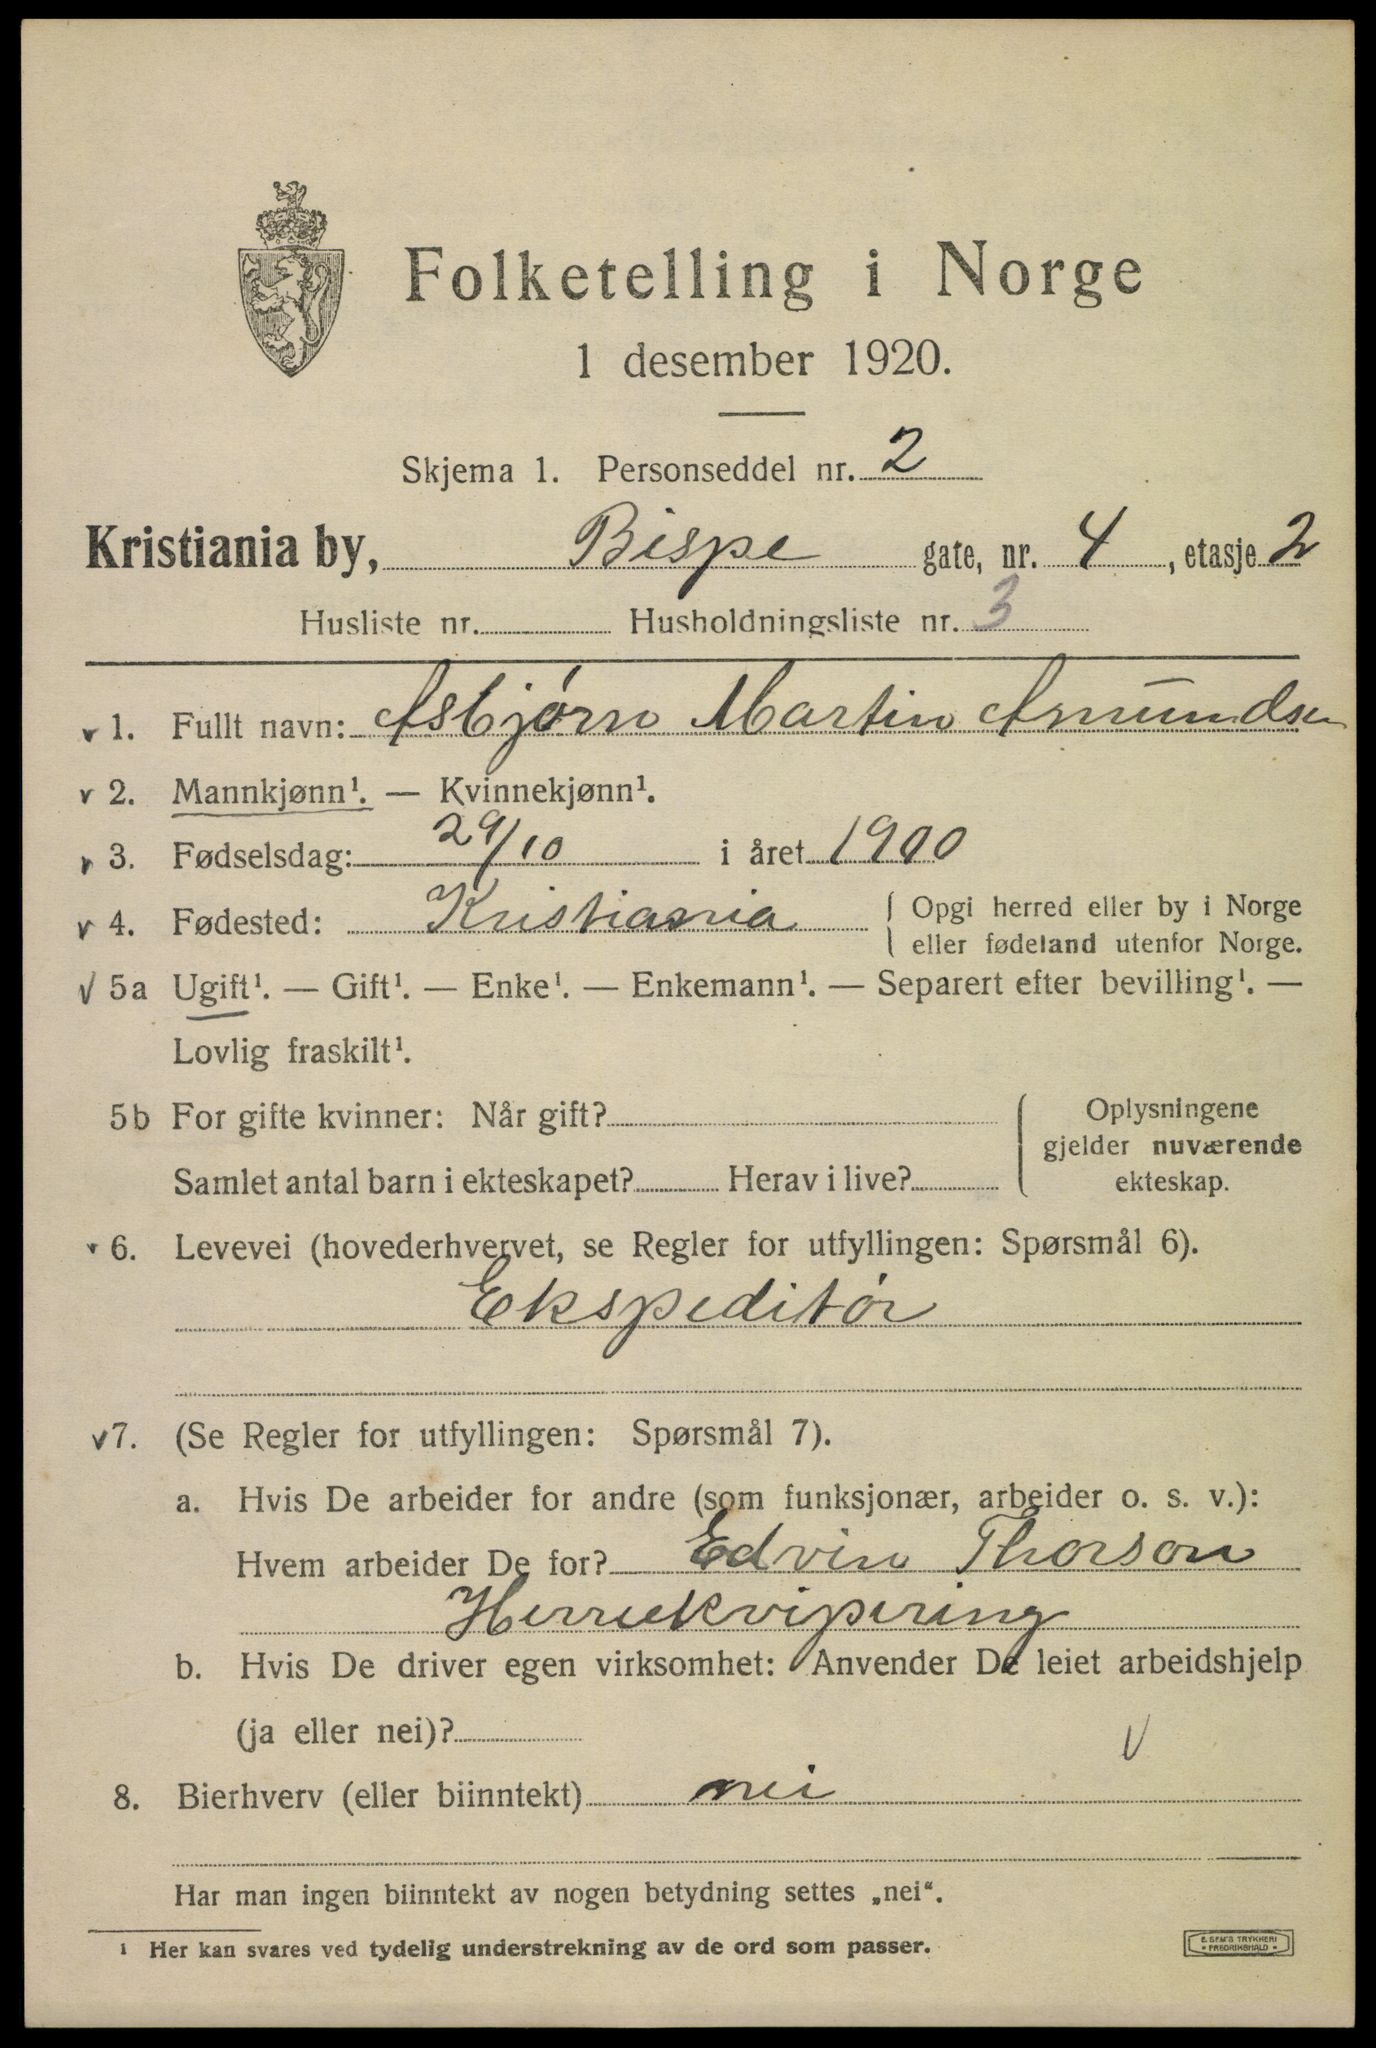 Folketelling i Norge
1 desember 1920.
Skjema 1. Personseddel nr. 2
Kristiania by, Bispe gate, nr. 4, etasje 2
Husliste nr. Husholdningsliste nr. 3
1. Fullt navn: Asbjørn Martin Asmundsen
2. Mannkjønn¹. — Kvinnekjønn¹.
3. Fødselsdag: 29/10 i året 1900
4. Fødested: Kristiania { Opgi herred eller by i Norge
eller fødeland utenfor Norge.
5a Ugift¹. — Gift¹. — Enke¹. — Enkemann¹. — Separert efter bevilling¹. —
Lovlig fraskilt¹.
5b For gifte kvinner: Når gift? { Oplysningene
gjelder nuværende
Samlet antal barn i ekteskapet? Herav i live? ekteskap.
6. Levevei (hovederhvervet, se Regler for utfyllingen: Spørsmål 6).
Ekspeditør
7. (Se Regler for utfyllingen: Spørsmål 7).
a. Hvis De arbeider for andre (som funksjonær, arbeider o. s. v.):
Hvem arbeider De for? Edvin Thorson
Herrekvipering
b. Hvis De driver egen virksomhet: Anvender De leiet arbeidshjelp
(ja eller nei)?
8. Bierhverv (eller biinntekt) nei
Har man ingen biinntekt av nogen betydning settes „nei“.
¹ Her kan svares ved tydelig understrekning av de ord som passer.
E. SEM'S TRYKKERI
• FREDRIKSHALD •